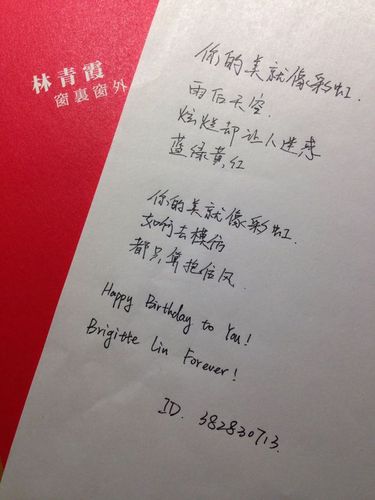 林青霞
窗裏窗外
你的美就像彩虹.
雨后天空.
炫烂却让人迷惑
蓝绿黄红
你的美就像彩虹.
如何去模仿
都只能抱住风.
Happy Birthday to You!
Brigitte Lin Forever!
ID. 382830713.